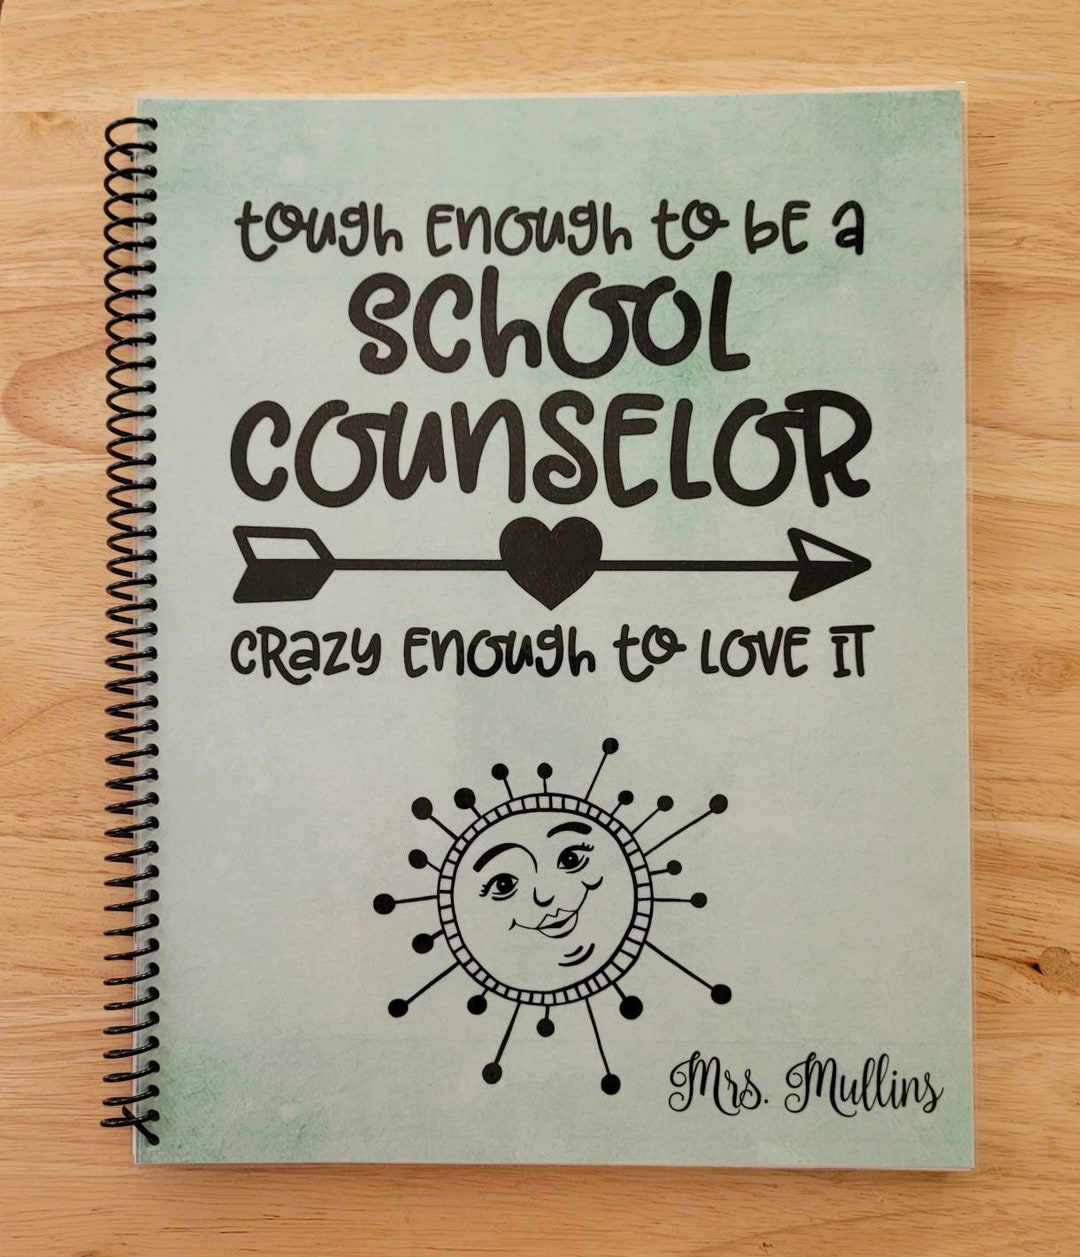 tough enough to be a
school
counselor
crazy enough to love it
Mrs. Mullins